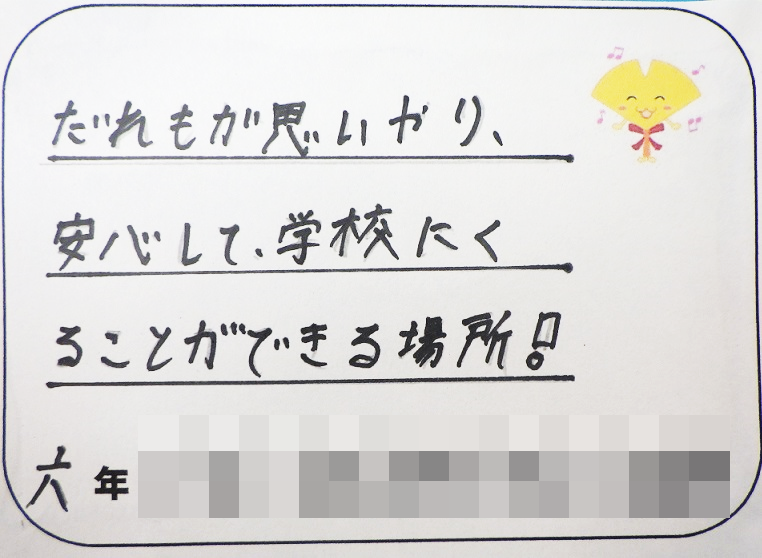 だれもが思いやり、
安心して、学校にく
ることができる場所!
六年